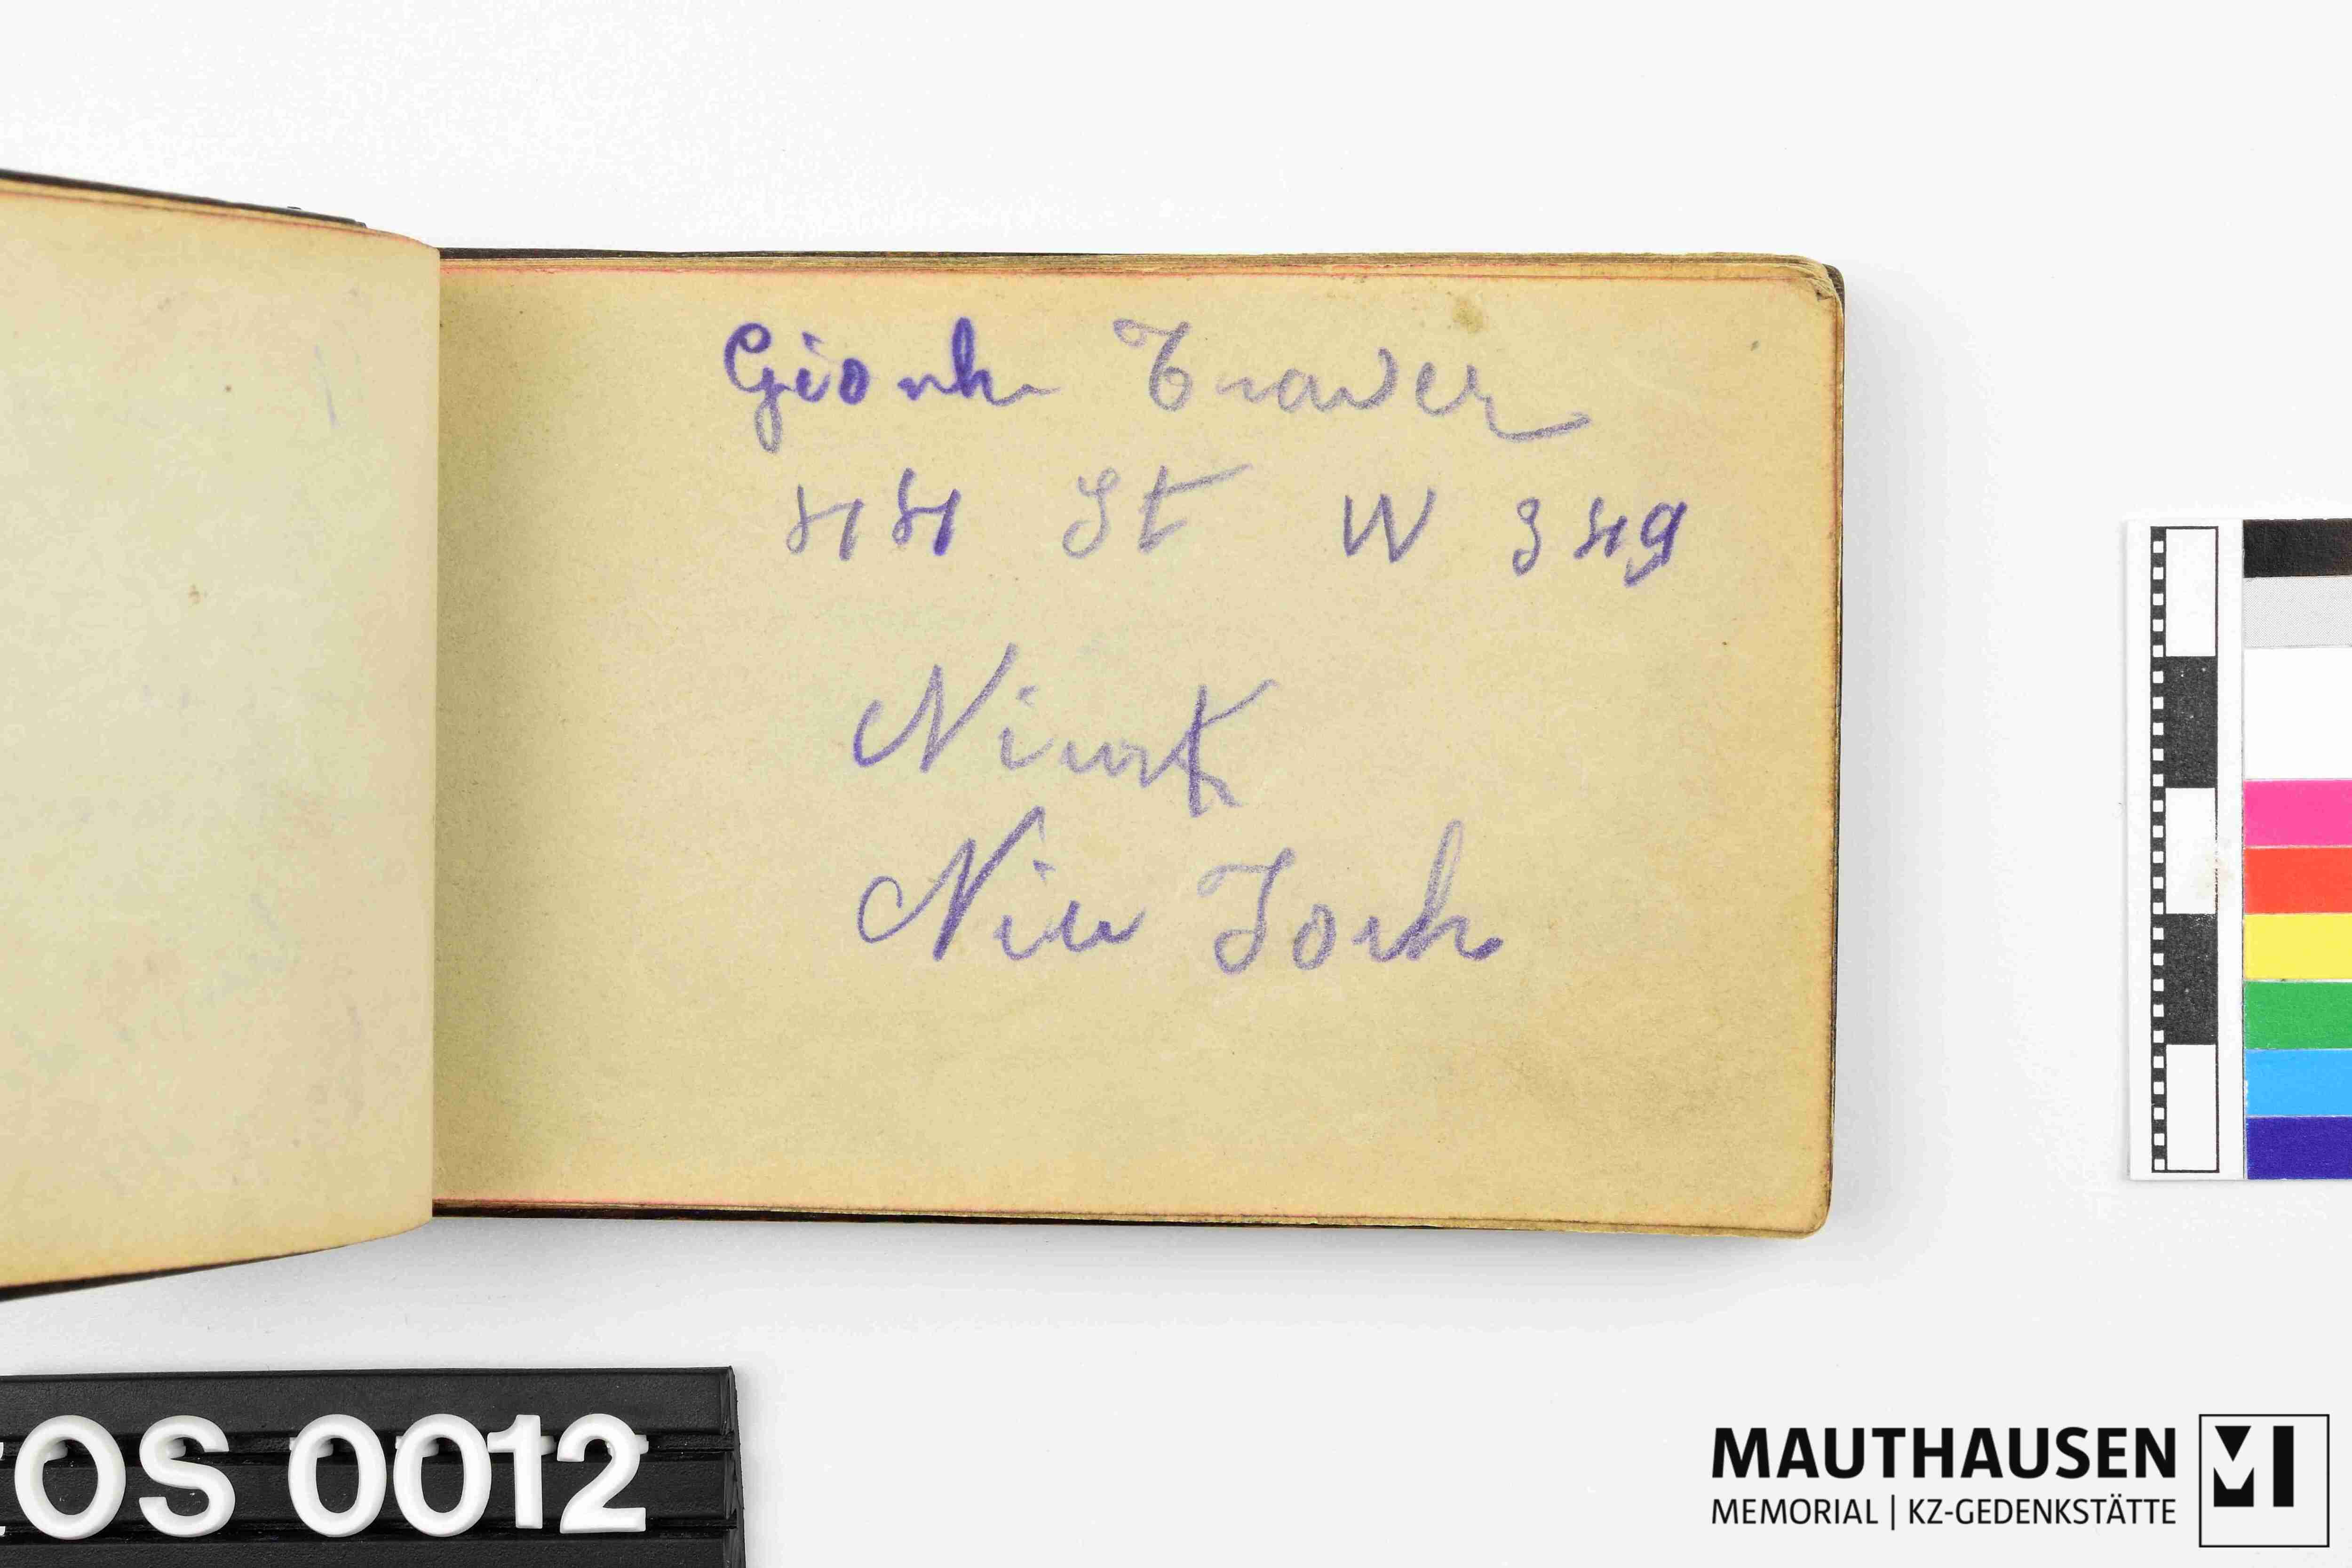 Giorh Traver
44 St W 349
Niurk
Niu Jork
OS 0012
MAUTHAUSEN
MEMORIAL | KZ-GEDENKSTÄTTE